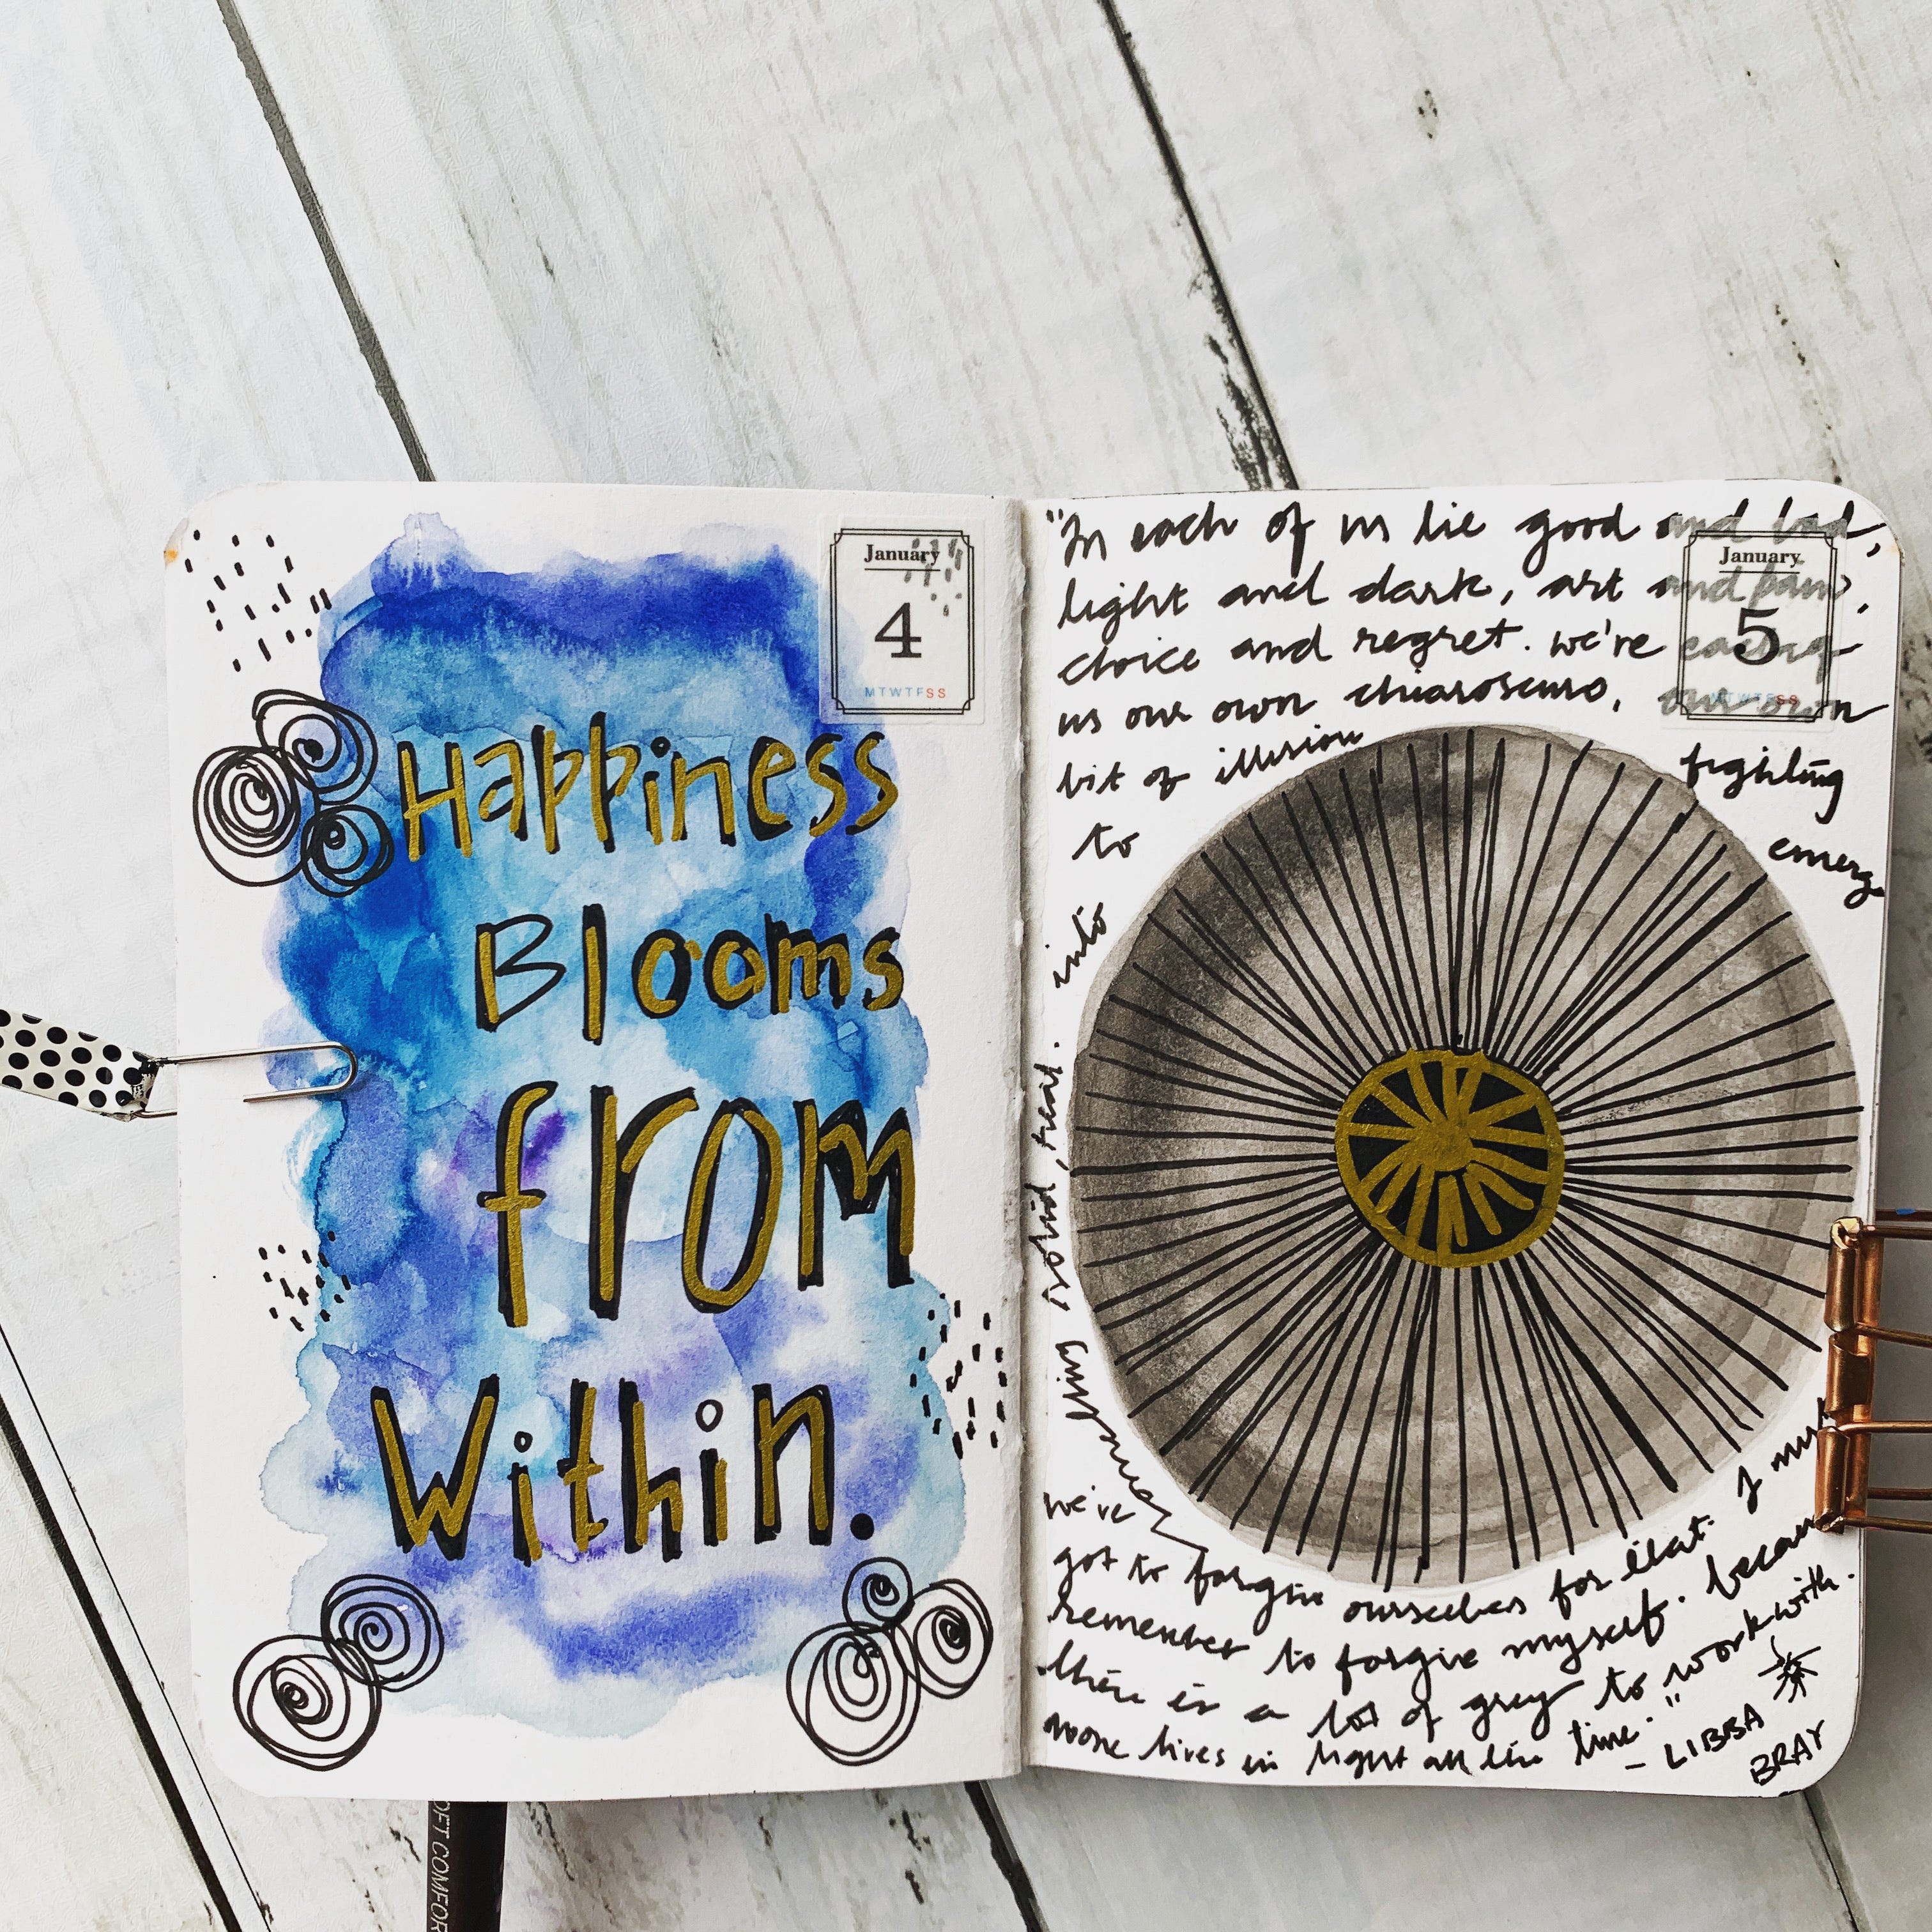 January
4
MTWTFSS
Happiness
Blooms
from
Within.
"In each of us lie good and bad,
light and dark, art and pain,
choice and regret. we're each of
us our own chiaroscuro, our own
bit of illusion fighting
to emerge
into
solid, real.
we've
got to forgive ourselves for that. I must
remember to forgive myself. because
there is a lot of grey to work with.
time."
- LIBBA
BRAY
January
5
MTWTFSS
OFT COMFOR